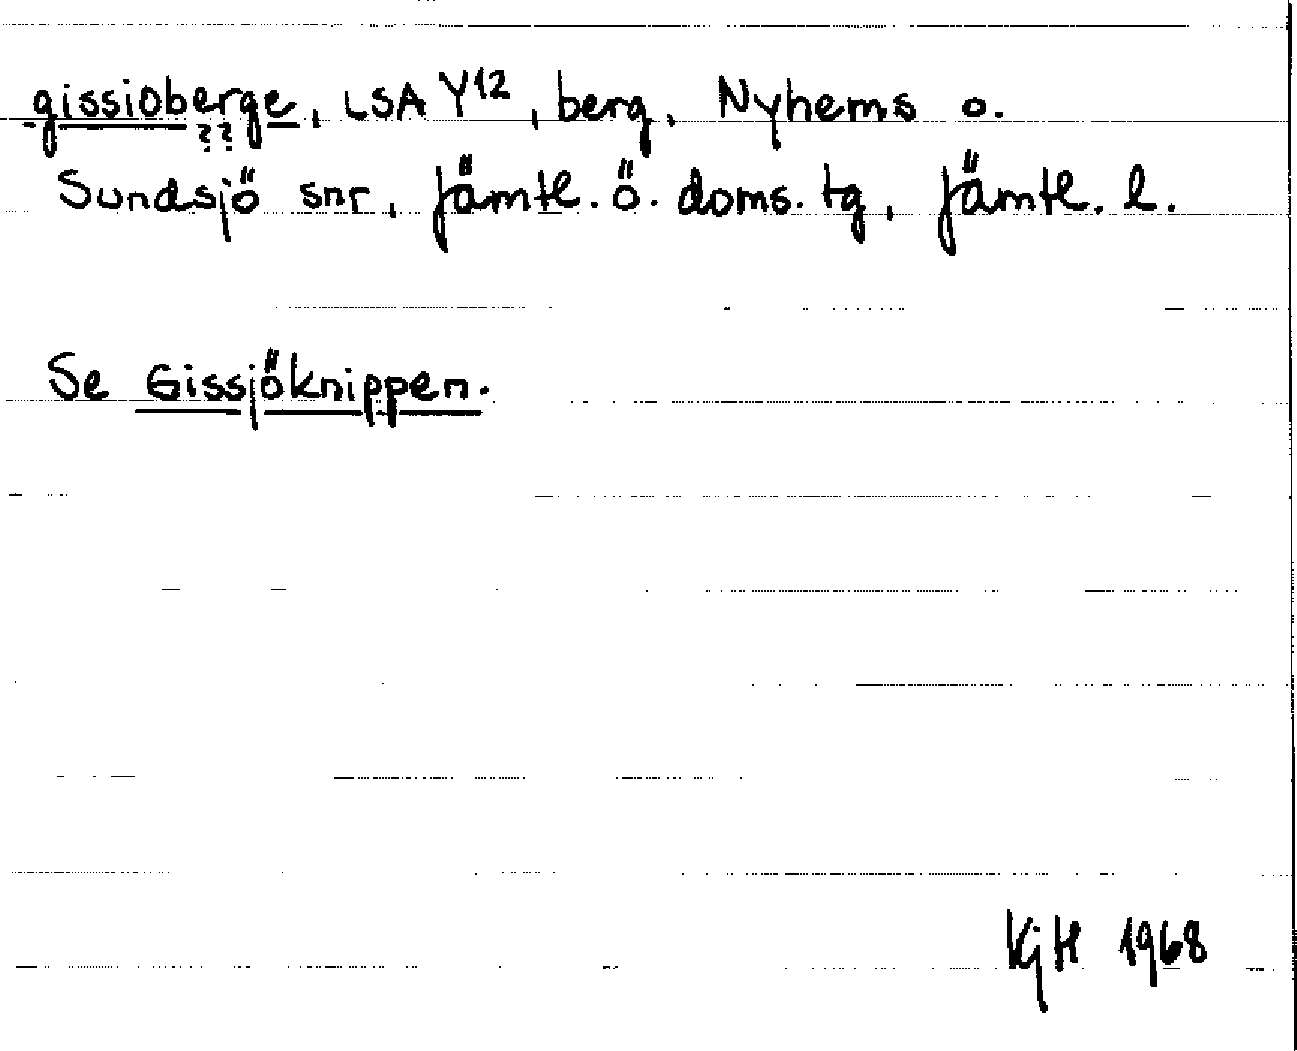 gissioberge, LSA Y12, berg, Nyhems o.
??
Sundsjö snr, Jämtl. ö. doms. tg, Jämtl. l.
Se Gissjöknippen.
KjH 1968